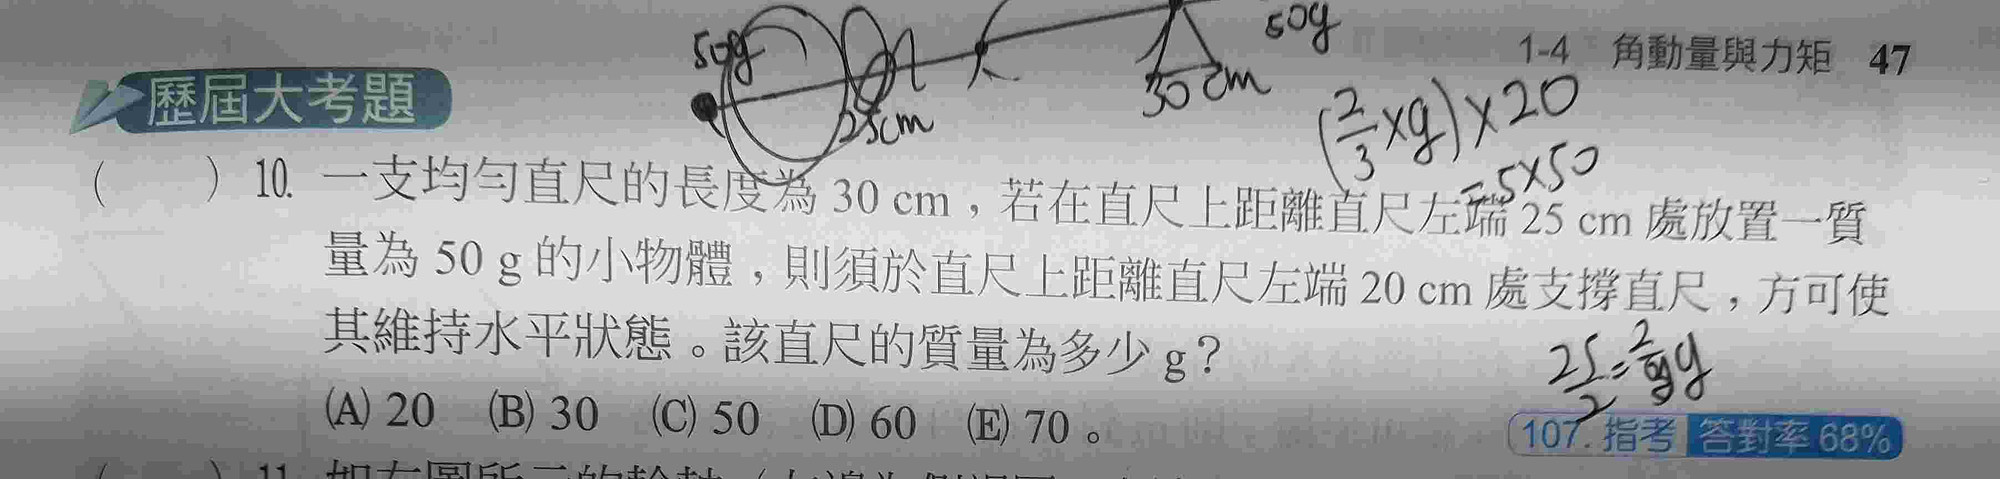 50g
50g
25cm
30cm
1-4 角動量與力矩 47
歷屆大考題
(2/3×g)×20
=5×50
( ) 10. 一支均勻直尺的長度為 30 cm，若在直尺上距離直尺左端 25 cm 處放置一質
量為 50 g 的小物體，則須於直尺上距離直尺左端 20 cm 處支撐直尺，方可使
其維持水平狀態。該直尺的質量為多少 g？
(A) 20 (B) 30 (C) 50 (D) 60 (E) 70。
107. 指考 答對率 68%